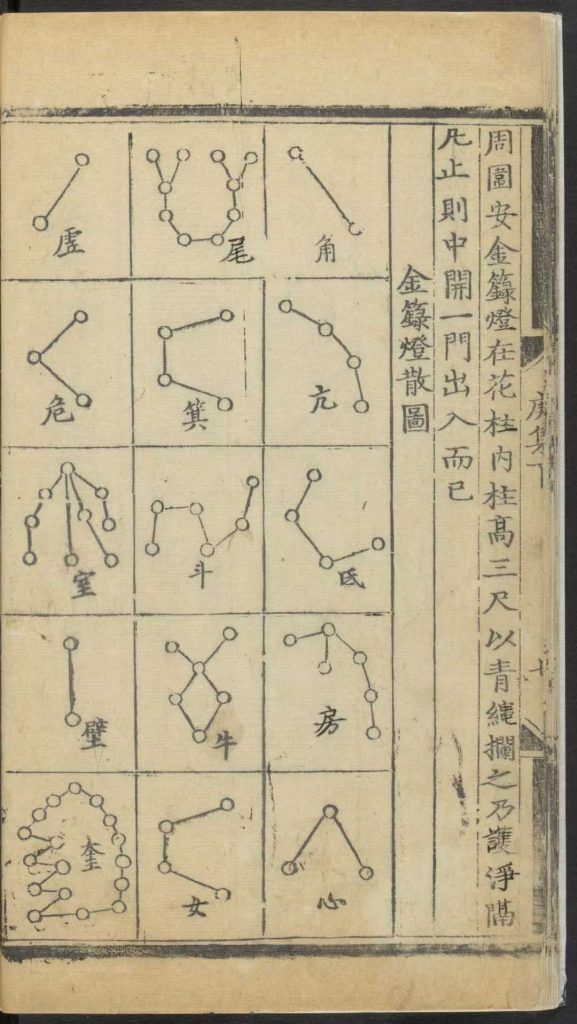 周圍安金籙燈在花柱內柱高三尺以青繩攔之乃護淨隔
凡止則中開一門出入而已
金籙燈散圖
角
亢
氐
房
心
尾
箕
斗
牛
女
虛
危
室
壁
奎